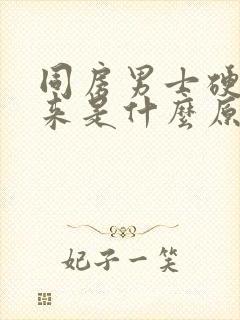 同房男士硬
来是什麼原
妃子一笑